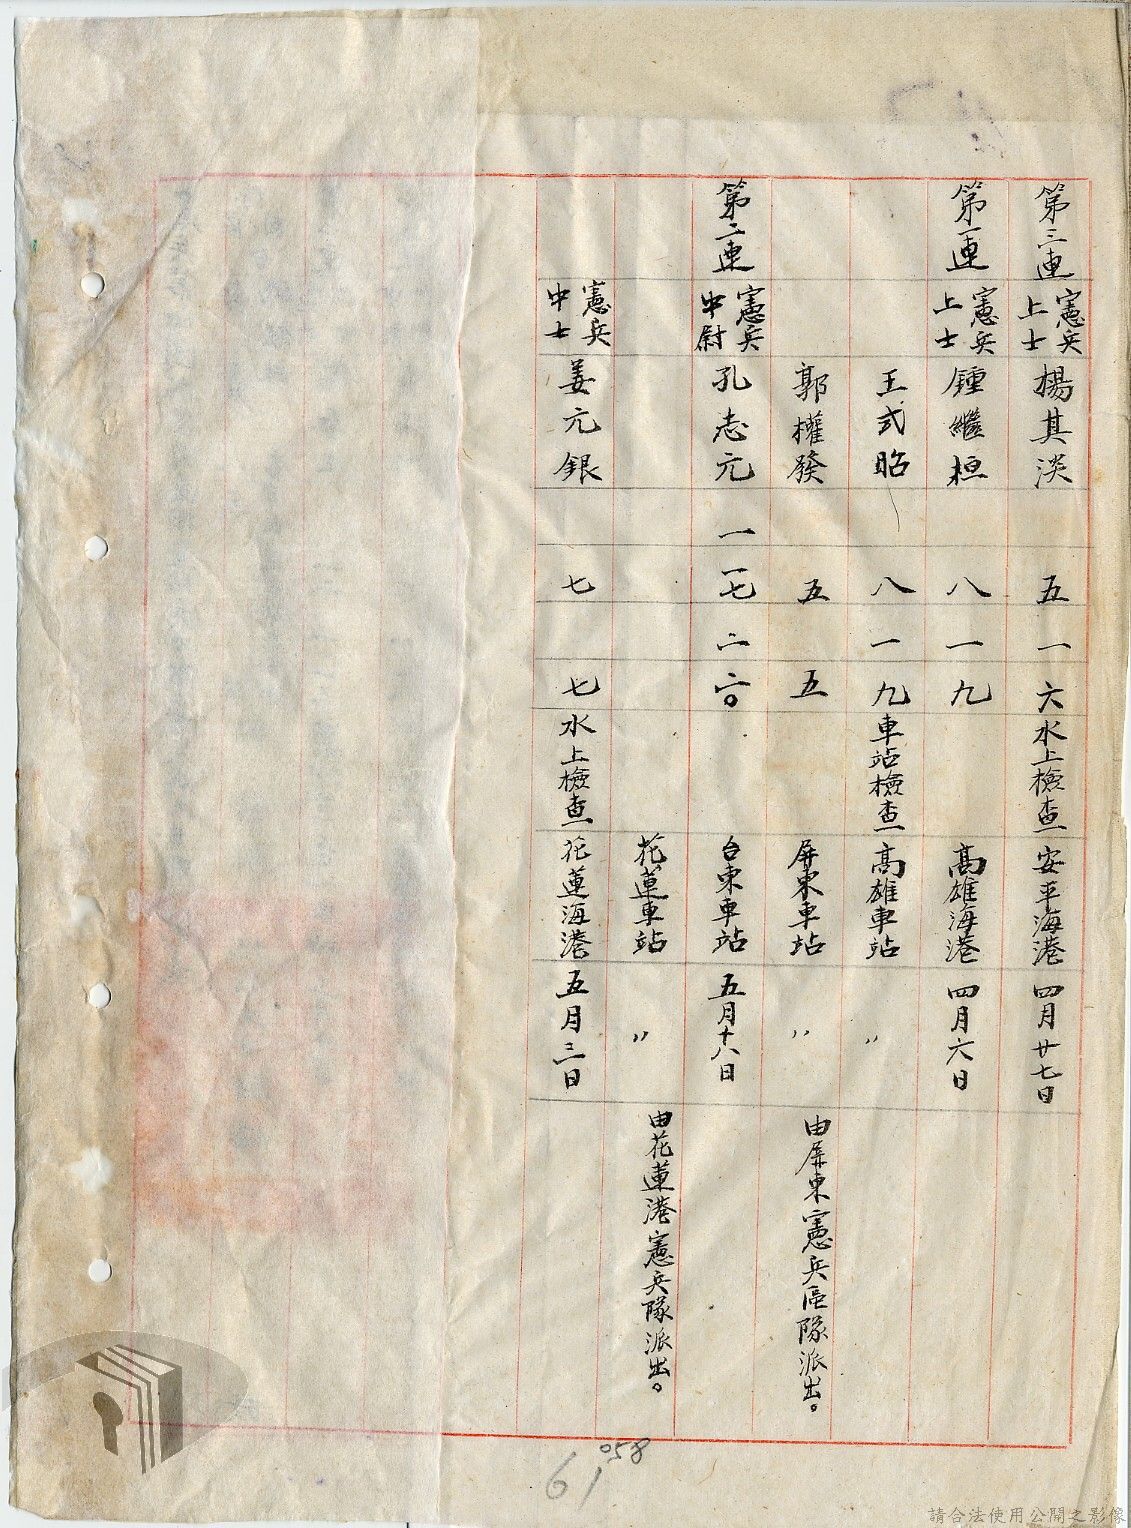 第三連 憲兵上士 楊其淡 五 一 六 水上檢查 安平海港 四月廿七日
第一連 憲兵上士 鍾繼桓 八 一 九 高雄海港 四月六日
王式昭 八 一 九 車站檢查 高雄車站 〃
郭權發 五 五 屏東車站 〃 由屏東憲兵區隊派出。
第二連 憲兵中尉 孔志元 一 一七 二 二〇 台東車站 五月十八日
花蓮車站 〃 由花蓮港憲兵隊派出。
憲兵中士 姜元銀 七 七 水上檢查 花蓮海港 五月三日
61
058
請合法使用公開之影像